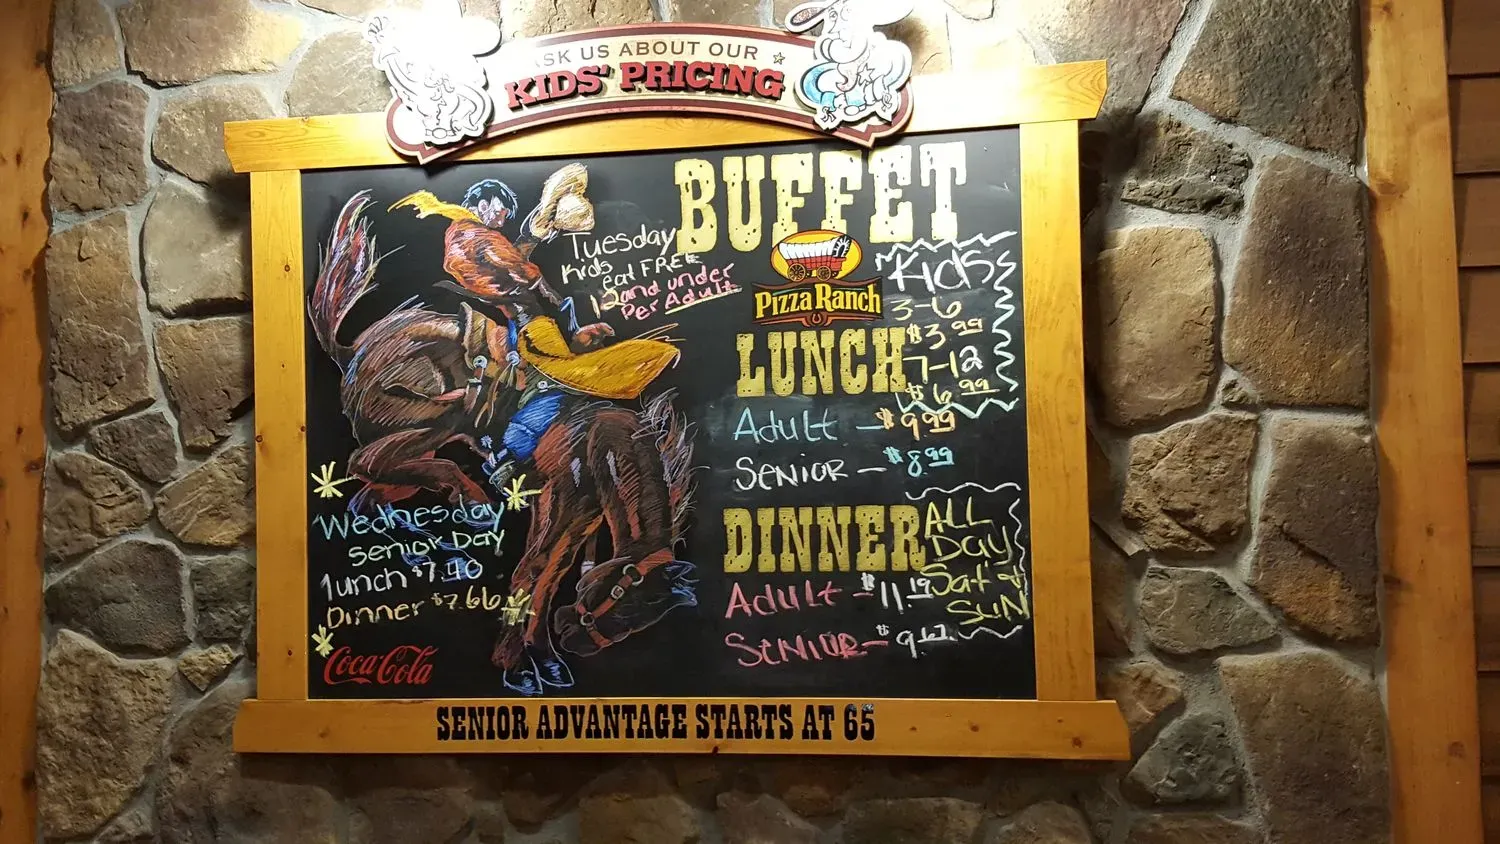 ASK US ABOUT OUR
KIDS' PRICING
BUFFET
Tuesday
Kids
eat FREE
12 and under
Per Adult
Pizza Ranch
Kids
3-6
$3.99
7-12
$6.99
LUNCH
Adult - $9.99
SENIOR - $8.99
DINNER
ALL
Day
Sat &
SUN
Adult - $11.19
SENIOR - $9.67
Wednesday
Senior Day
lunch $7.40
Dinner $7.66
Coca-Cola
SENIOR ADVANTAGE STARTS AT 65